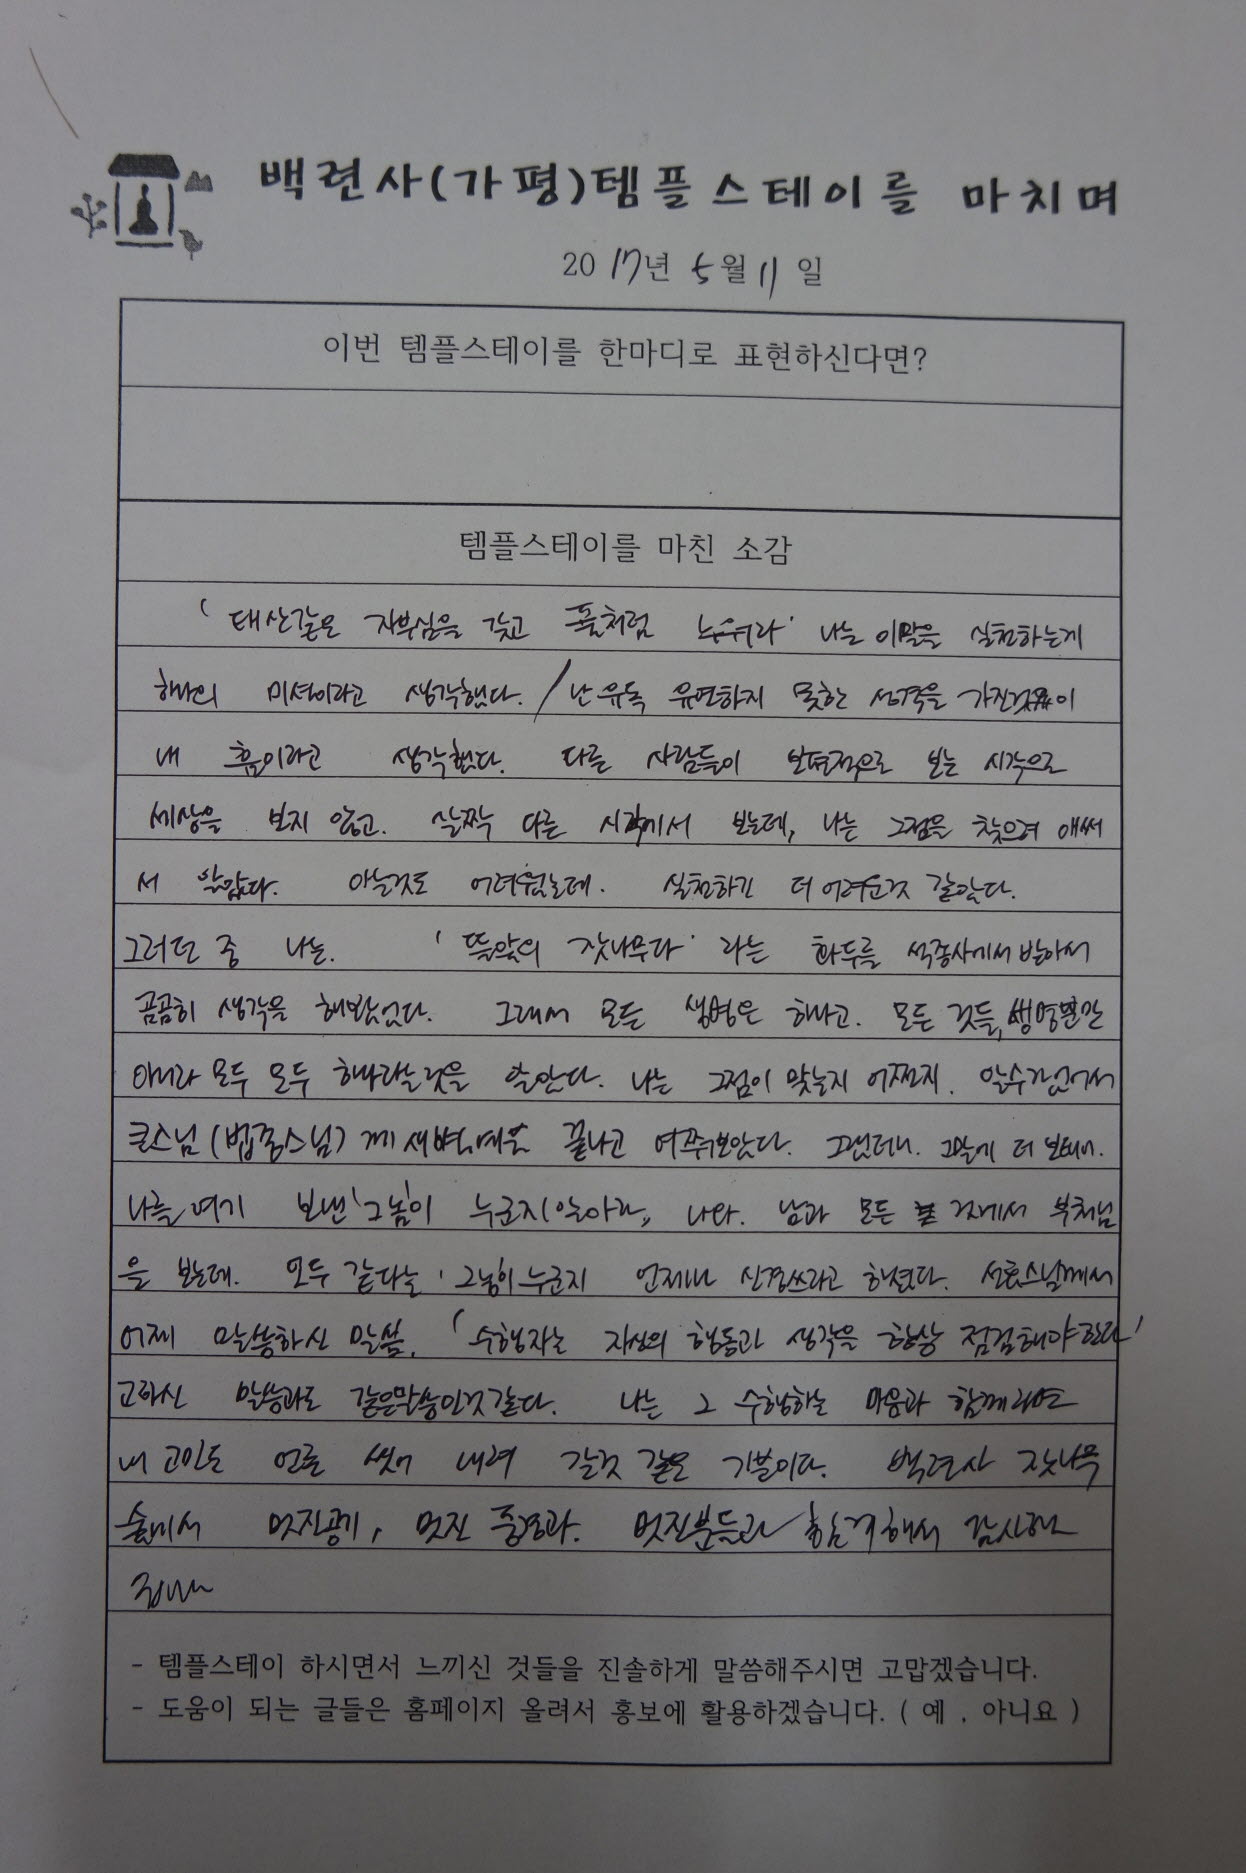 백련사(가평)템플스테이를 마치며
2017년 5월 11일
이번 템플스테이를 한마디로 표현하신다면?
템플스테이를 마친 소감
'태산같은 자부심을 갖고 풀처럼 누워라' 나는 이말을 실천하는게
하나의 미션이라고 생각했다. / 난 유독 유연하지 못한 성격을 가진것이
내 흠이라고 생각했다. 다른 사람들이 보편적으로 보는 시각으로
세상을 보지 않고. 살짝 다른 시각에서 보는데, 나는 그점을 찾으려 애써
서 알았다. 아는것도 어려웠는데. 실천하긴 더 어려운것 같았다.
그러던 중 나는. '뜰앞의 잣나무다' 라는 화두를 석종사에서 받아서
곰곰히 생각을 해봤었다. 그래서 모든 생명은 하나고. 모든 것들, 생명뿐만
아니라 모두 모두 하나라는것을 알았다. 나는 그점이 맞는지 어쩐지. 알수가없어서
큰스님 (법중스님) 께 새벽예불 끝나고 여쭤보았다. 그랬더니. 그말에 더 보태어.
나를 여기 보낸 '그놈'이 누군지 알아라, 나와. 남과 모든 것에서 부처님
을 보는데. 모두 같다는 '그놈이 누군지 언제나 신경쓰라고 하셨다. 스님께서
어제 말씀하신 말씀. '수행자는 자신의 행동과 생각을 항상 점검해야한다'
고하신 말씀과도 같은말씀인것같다. 나는 그 수행하는 마음과 함께라면
내 고민도 언른 씻어 내려 갈것 같은 기분이다. 백련사 잣나무
숲에서 멋진공기, 멋진 풍경과. 멋진분들과 함께해서 감사하
- 템플스테이 하시면서 느끼신 것들을 진솔하게 말씀해주시면 고맙겠습니다.
- 도움이 되는 글들은 홈페이지 올려서 홍보에 활용하겠습니다. ( 예 , 아니요 )